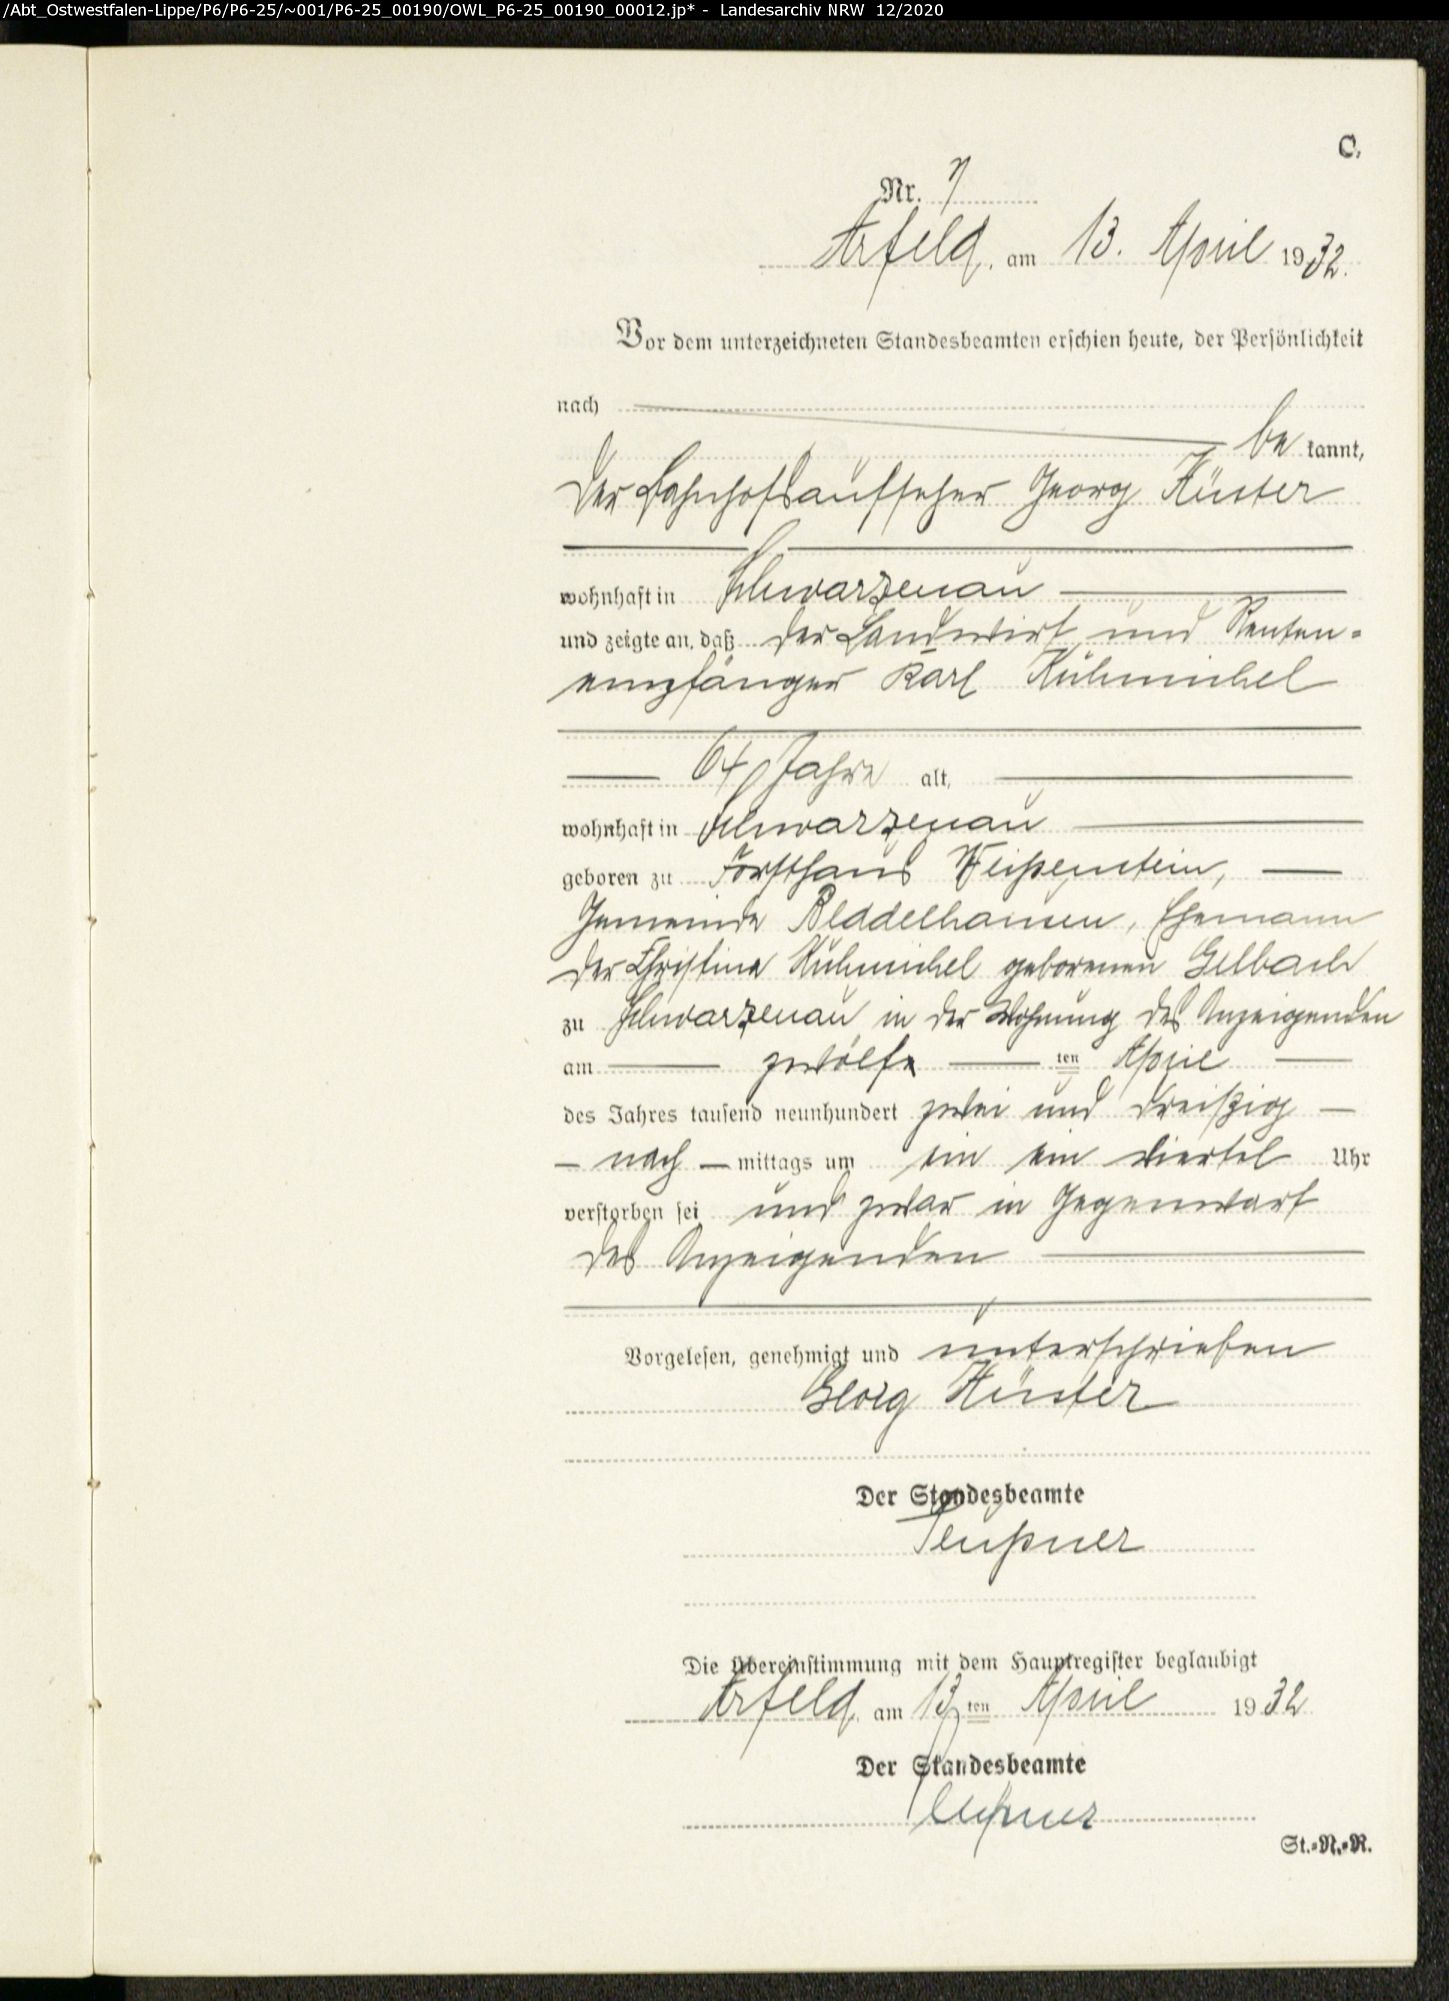 /Abt_Ostwestfalen-Lippe/P6/P6-25/~001/P6-25_00190/OWL_P6-25_00190_00012.jp* - Landesarchiv NRW 12/2020
C.
Nr. 7
Arfeld, am 13. April 1932.
Vor dem unterzeichneten Standesbeamten erschien heute, der Persönlichkeit
nach
be kannt,
der Bahnhofsaufseher Georg Küster
wohnhaft in Schwarzenau
und zeigte an, daß der Landwirt und Renten-
empfänger Karl Kühmichel
64 Jahre alt,
wohnhaft in Schwarzenau
geboren zu Forsthaus Weißenstein,
Gemeinde Beddelhausen, Ehemann
der Christine Kühmichel geborenen Gelbach
zu Schwarzenau in der Wohnung des Anzeigenden
am zwölften April
des Jahres tausend neunhundert zwei und dreißig
nach mittags um ein ein viertel Uhr
verstorben sei und zwar in Gegenwart
des Anzeigenden
Vorgelesen, genehmigt und unterschrieben
Georg Küster
Der Standesbeamte
Die Übereinstimmung mit dem Hauptregister beglaubigt
Arfeld, am 13ten April 1932
Der Standesbeamte
St.-N.-R.